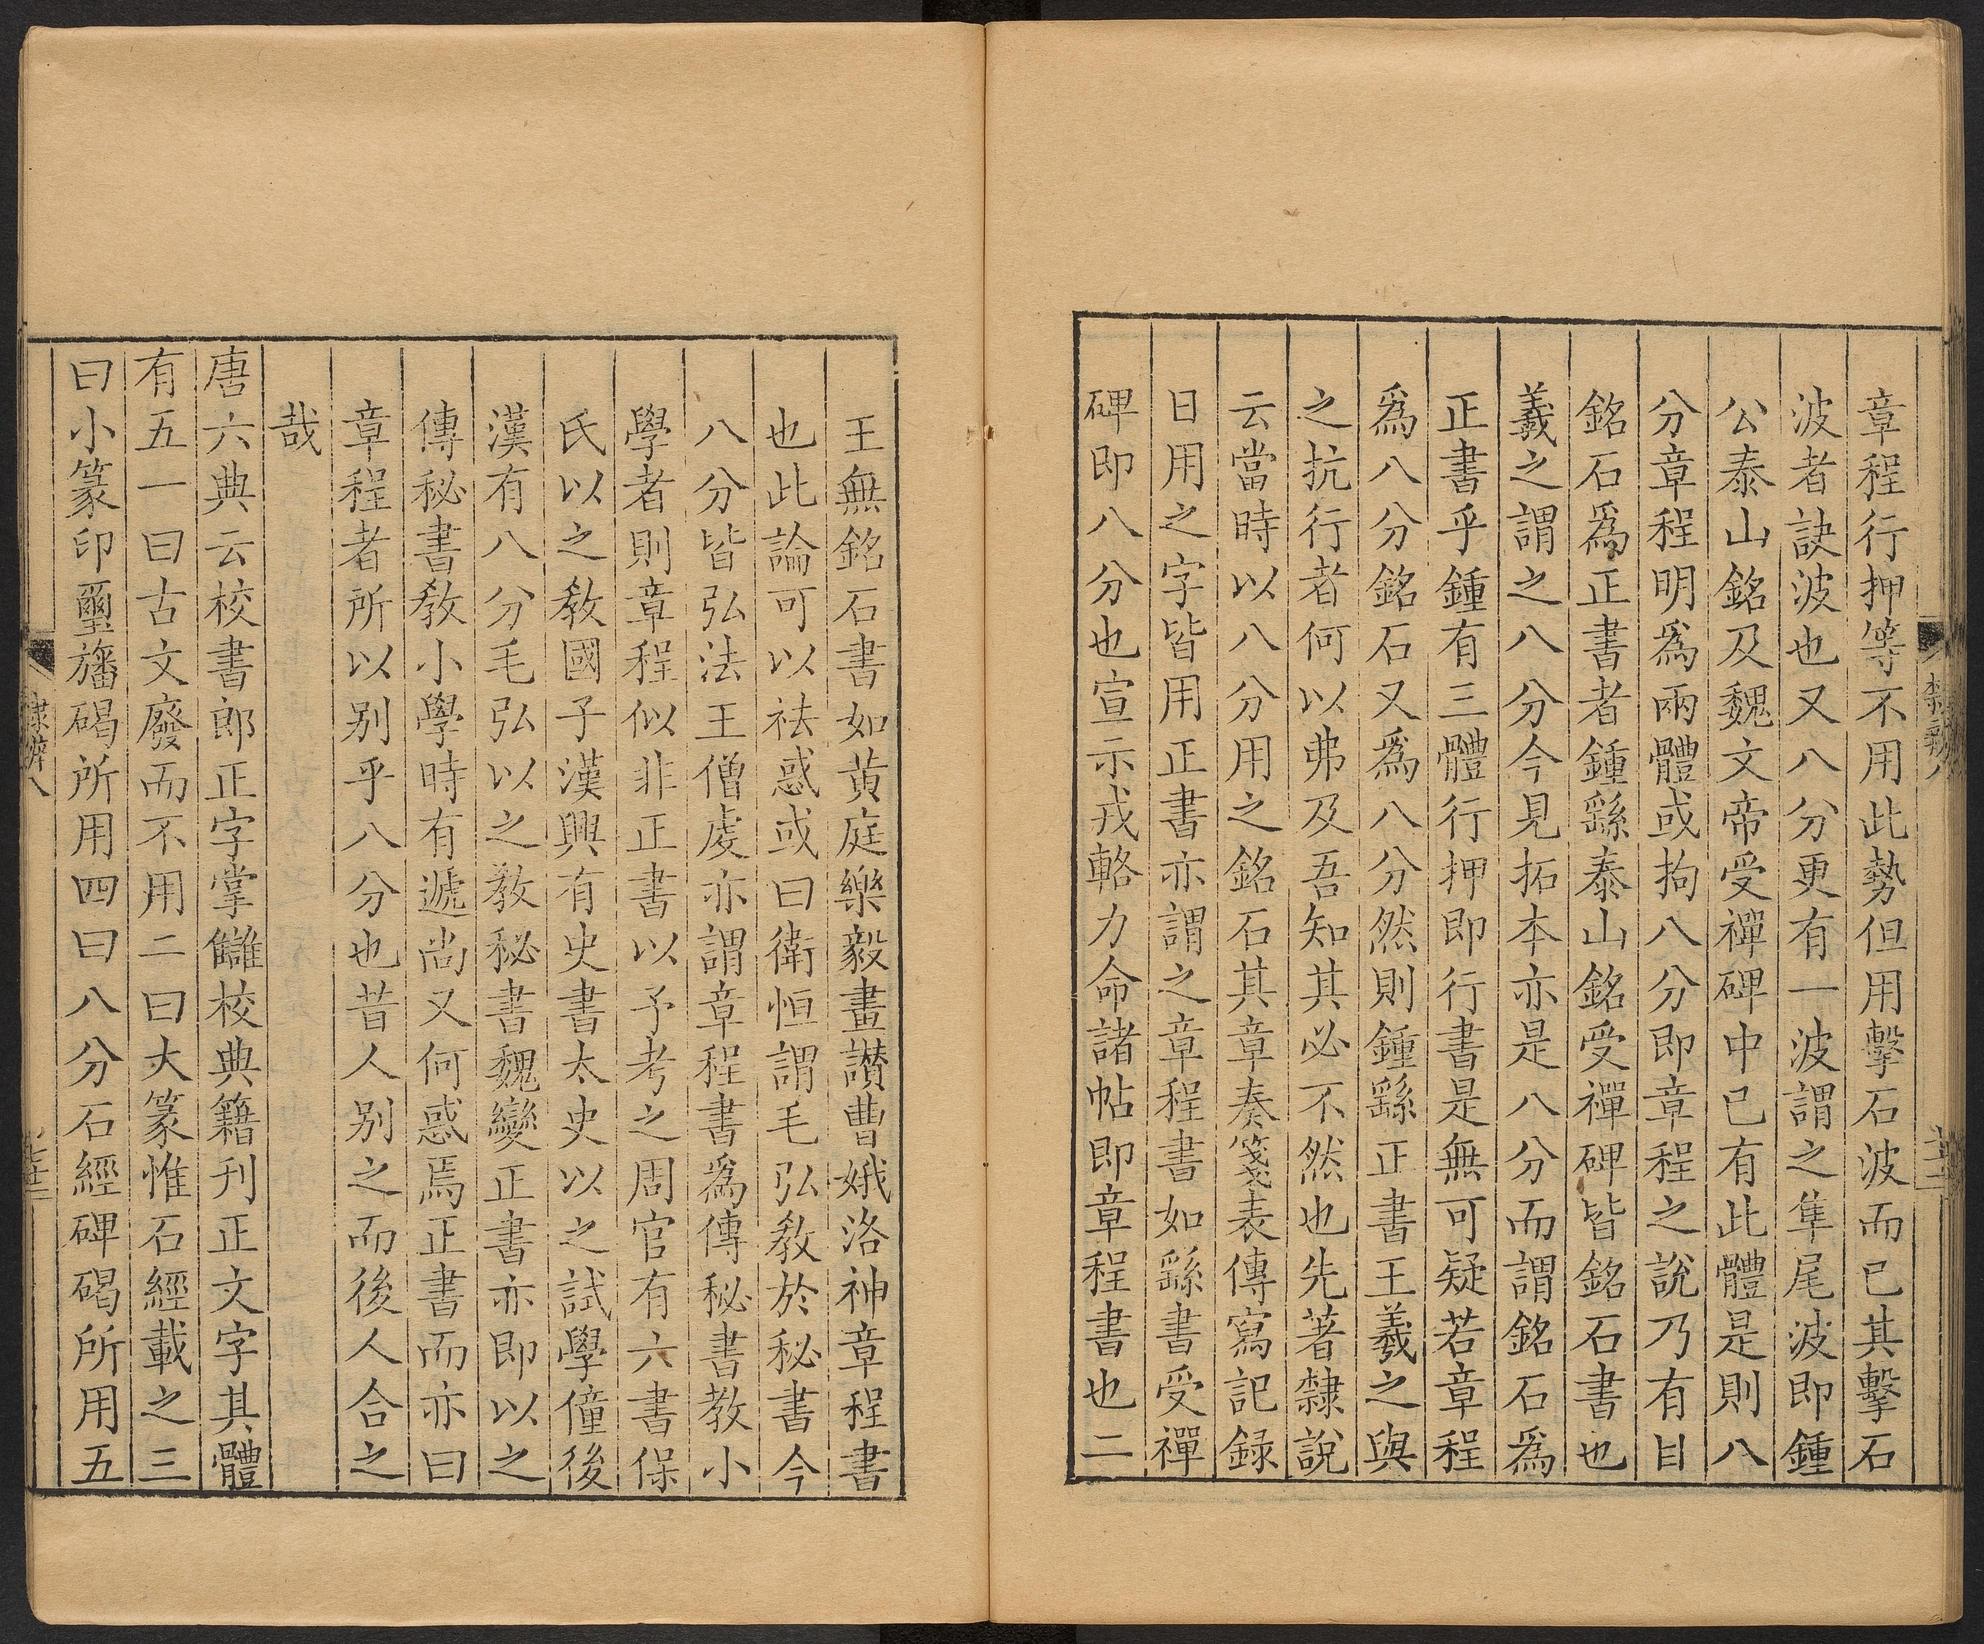 章程行押等不用此勢但用擊石波而已其擊石
波者訣波也又八分更有一波謂之隼尾波即鍾
公泰山銘及魏文帝受禪碑中已有此體是則八
分章程明爲兩體或拘八分即章程之說乃有目
銘石爲正書者鍾繇泰山銘受禪碑皆銘石書也
羲之謂之八分今見拓本亦是八分而謂銘石爲
正書乎鍾有三體行押即行書是無可疑若章程
爲八分銘石又爲八分然則鍾繇正書王羲之與
之抗行者何以弗及吾知其必不然也先著隸說
云當時以八分用之銘石其章奏箋表傳寫記録
日用之字皆用正書亦謂之章程書如繇書受禪
碑即八分也宣示戎輅力命諸帖即章程書也二
王無銘石書如黃庭樂毅畫讃曹娥洛神章程書
也此論可以祛惑或曰衛恒謂毛弘教於秘書今
八分皆弘法王僧虔亦謂章程書爲傳秘書教小
學者則章程似非正書以予考之周官有六書保
氏以之教國子漢興有史書太史以之試學僮後
漢有八分毛弘以之教秘書魏變正書亦即以之
傳秘書教小學時有遞尚又何惑焉正書而亦曰
章程者所以别乎八分也昔人别之而後人合之
哉
唐六典云校書郎正字掌讎校典籍刊正文字其體
有五一曰古文廢而不用二曰大篆惟石經載之三
曰小篆印璽旛碣所用四曰八分石經碑碣所用五